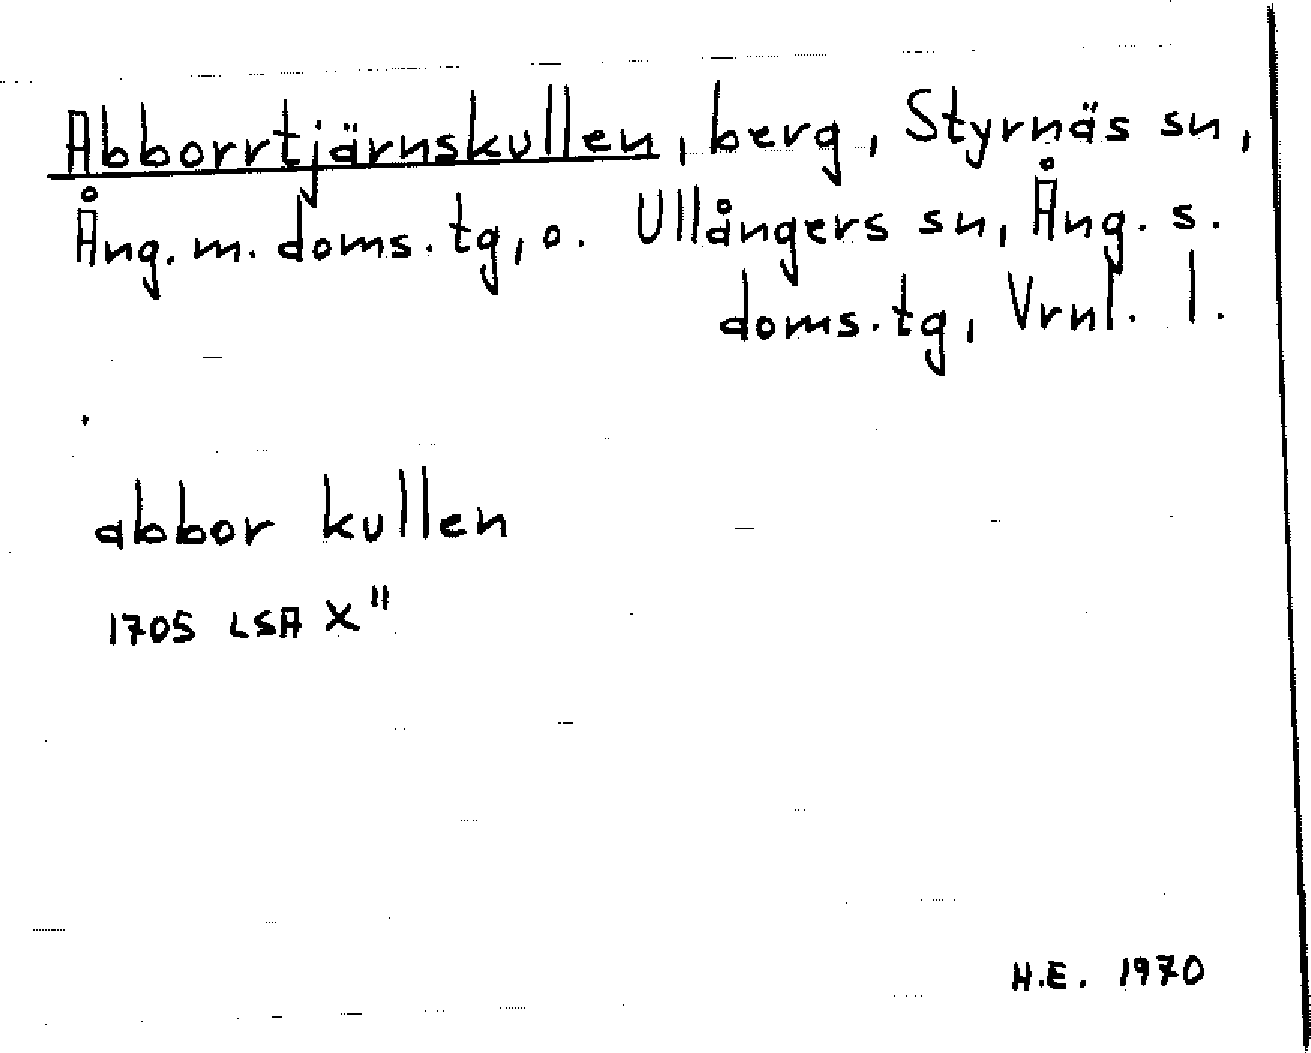 Abborrtjärnskullen, berg, Styrnäs sn,
Ång. m. doms. tg, o. Ullångers sn, Ång. s.
doms. tg, Vrnl. l.
abbor kullen
1705 LSA X"
H.E. 1970